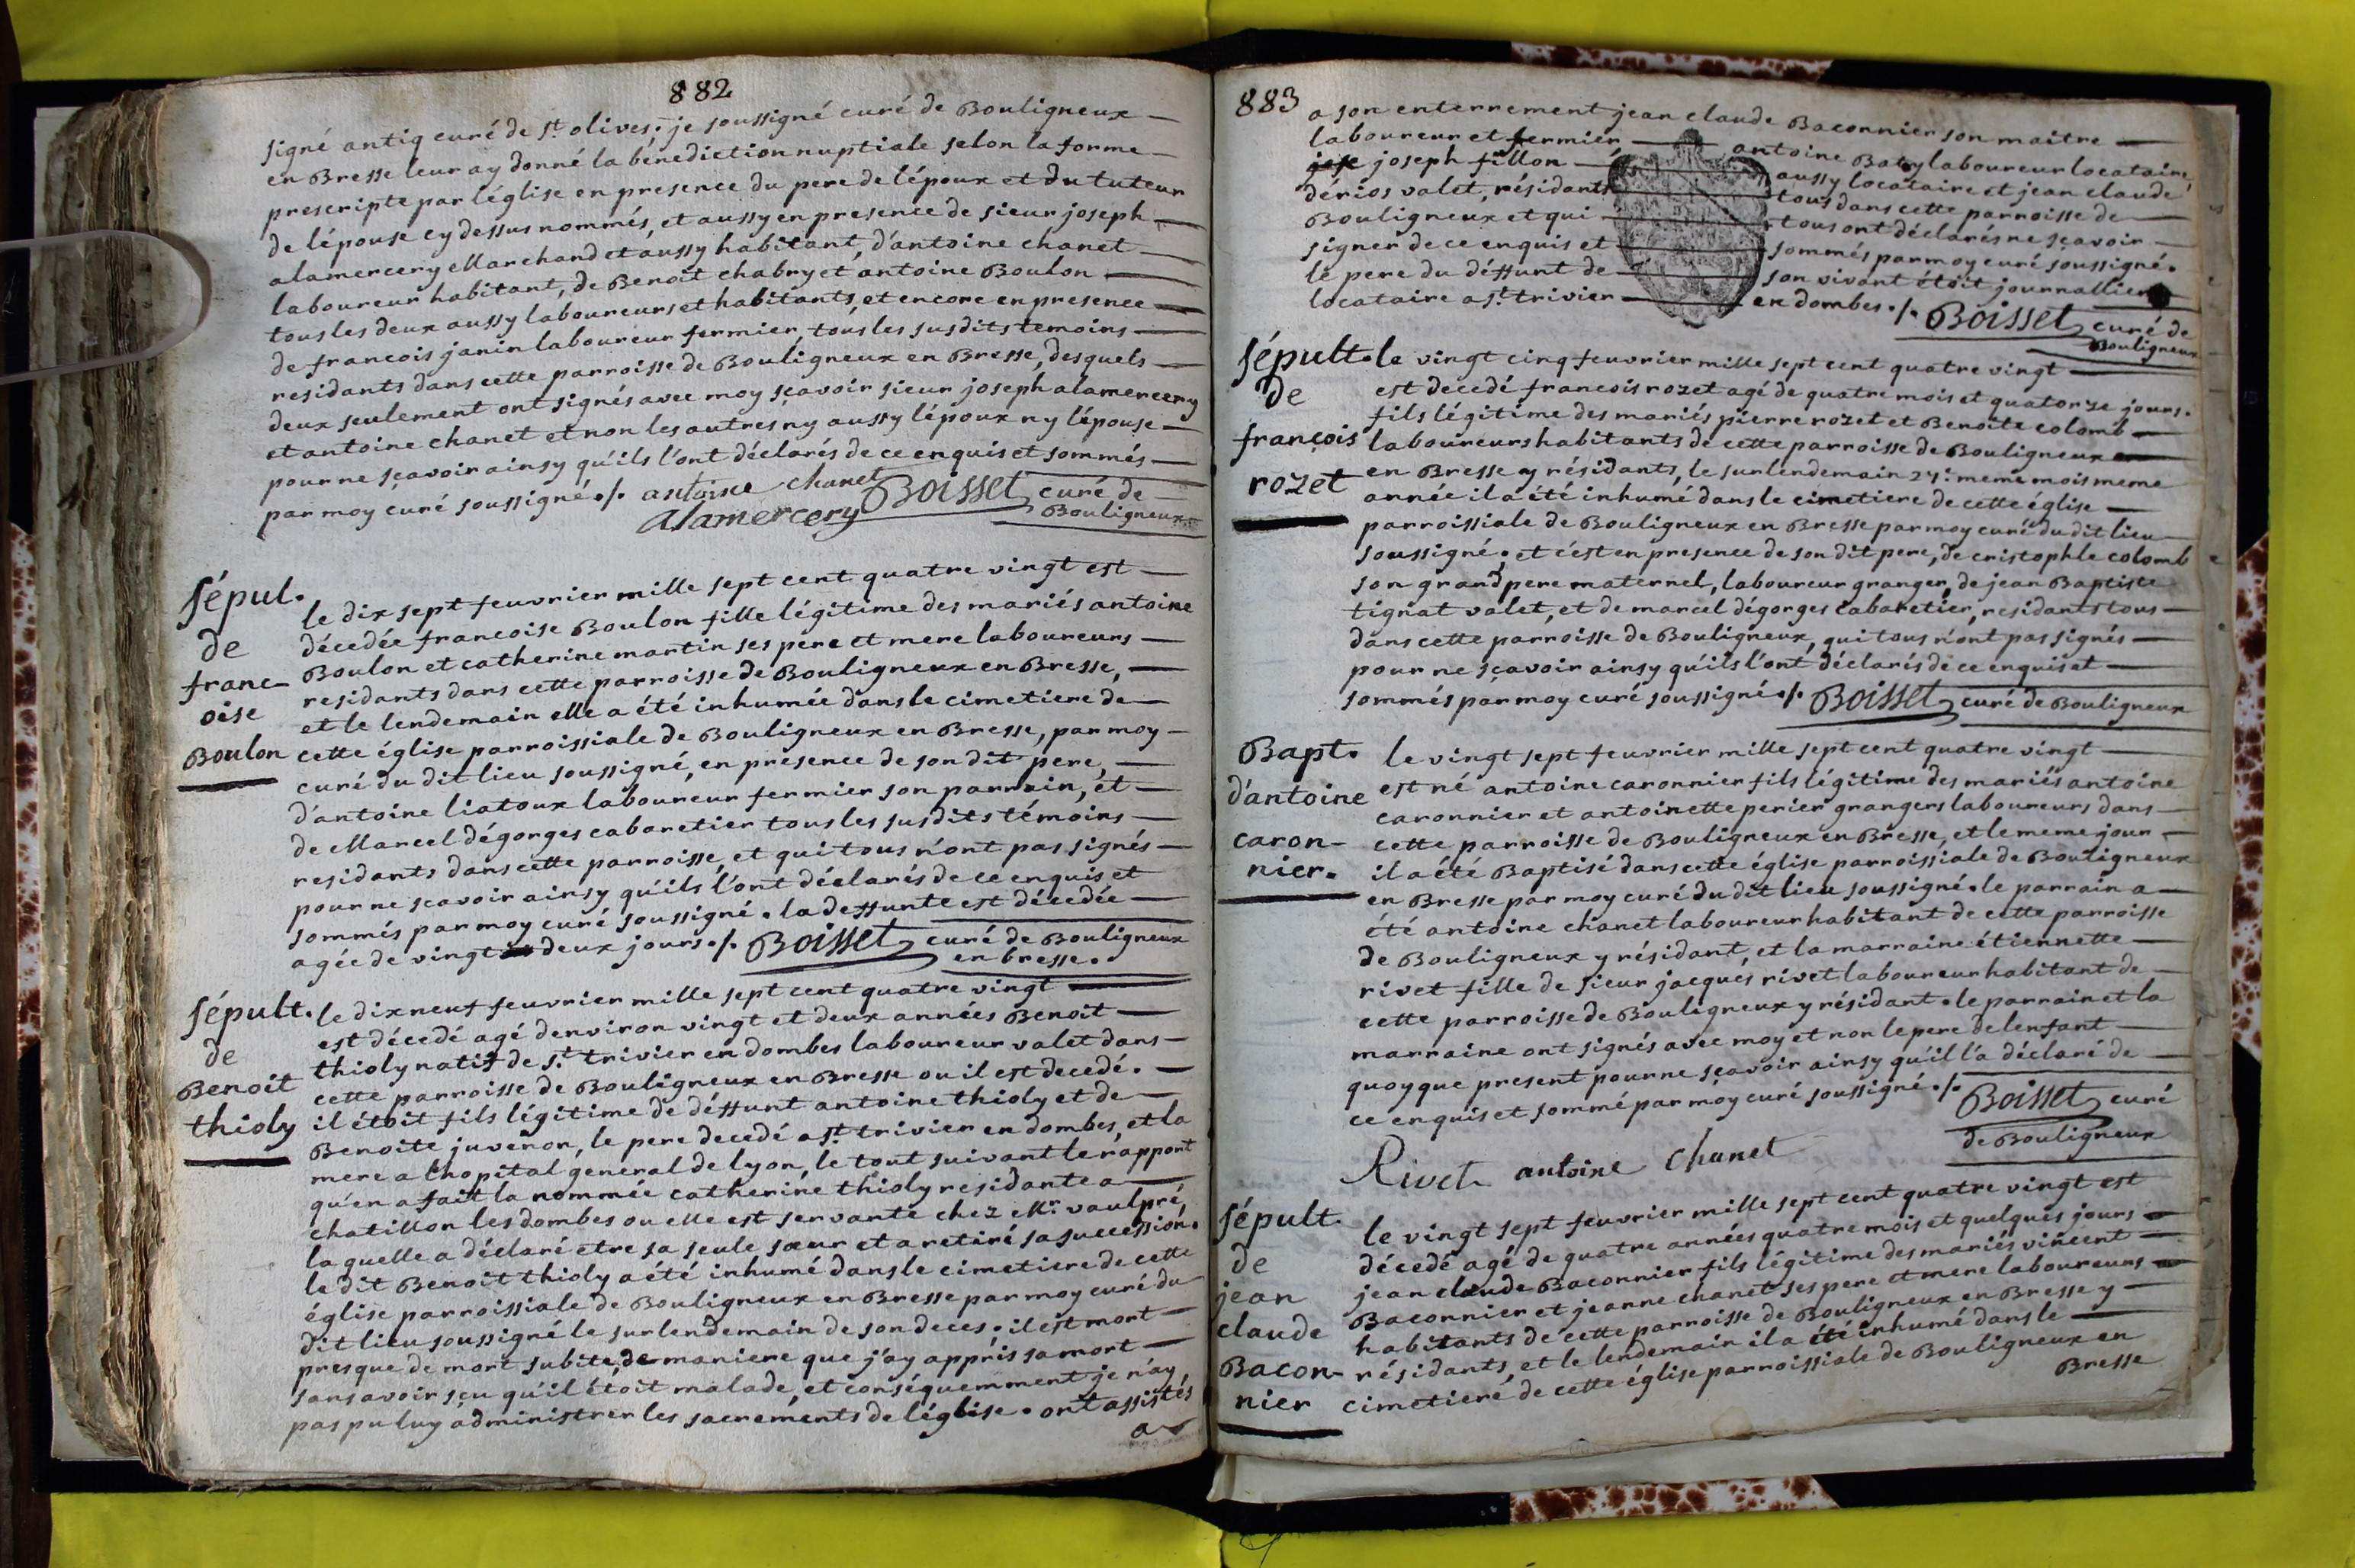 882
signé antig curé de st olives. je soussigné curé de Bouligneux
en Bresse leur ay donné la bénediction nuptiale selon la forme
prescripte par léglise en presence du pere de lépoux et du tuteur
de lépouse cy dessus nommés, et aussy en presence de sieur joseph
alamercery Marchand et aussy habitant, d'antoine chanet
laboureur habitant, de Benoit chabry et antoine Boulon
tous les deux aussy laboureurs et habitants, et encore en presence
de francois janin laboureur fermier, tous les susdits temoins
residants dans cette parroisse de Bouligneux en Bresse, desquels
deux seulement ont signés avec moy sçavoir sieur joseph alamercery
et antoine chanet et non les autres ny aussy lépoux ny lépouse
pour ne sçavoir ainsy qu'ils l'ont déclarés de ce enquis et sommés
par moy curé soussigné ./. antoine chanet Boisset curé de
alamercery Bouligneux
sépul.
de
franc-
oise
Boulon
le dix sept feuvrier mille sept cent quatre vingt est
décedée francoise Boulon fille légitime des mariés antoine
Boulon et catherine martin ses pere et mere laboureurs
residants dans cette parroisse de Bouligneux en Bresse,
et le lendemain elle a été inhumée dans le cimetiere de
cette église parroissiale de Bouligneux en Bresse, par moy
curé du dit lieu soussigné, en presence de son dit pere,
d'antoine liatoux laboureur fermier son parrain, et
de Marcel dégorges cabaretier tous les susdits témoins
residants dans cette parroisse, et qui tous n'ont pas signés
pour ne sçavoir ainsy qu'ils l'ont déclarés de ce enquis et
sommés par moy curé soussigné. la deffunte est décedée
agée de vingt deux jours ./. Boisset curé de Bouligneux
en bresse.
sépult.
de
Benoit
thioly
le dix neuf feuvrier mille sept cent quatre vingt
est décedé agé denviron vingt et deux années Benoit
thioly natif de st. trivier en dombes laboureur valet dans
cette parroisse de Bouligneux en Bresse ou il est decedé.
il étoit fils légitime de déffunt antoine thioly et de
Benoite juvenon, le pere decedé a st. trivier en dombes, et la
mere a lhopital general de lyon, le tout suivant le rapport
qu'en a fait la nommée catherine thioly residante a
chatillon les dombes ou elle est servante chez Mr. vaulpré
la quelle a déclaré etre sa seule sœur et a retiré sa succession.
le dit Benoit thioly a été inhumé dans le cimetiere de cette
église parroissiale de Bouligneux en Bresse par moy curé du
dit lieu soussigné le surlendemain de son deces. il est mort
presque de mort subite, de maniere que j'ay appris sa mort
sans avoir sçu qu'il étoit malade, et conséquemment je n'ay
pas pu luy administrer les sacrements de léglise. ont assistés
a
883
a son enterrement jean claude Baconnier son maitre
laboureur et fermier antoine laboureur locataire,
joseph fillon aussy locataire et jean claude
dérios valet, résidants tous dans cette parroisse de
Bouligneux et qui tous ont déclarés ne sçavoir
signer de ce enquis et sommés par moy curé soussigné.
le pere du déffunt de son vivant étoit journallier
locataire a st. trivier en dombes ./. Boisset curé de
Bouligneux
sépult.
de
françois
rozet
le vingt cinq feuvrier mille sept cent quatre vingt
est decedé francois rozet agé de quatre mois et quatorze jours.
fils légitime des mariés pierre rozet et Benoite colomb
laboureurs habitants de cette parroisse de Bouligneux
en Bresse y résidants, le surlendemain 27e. meme mois meme
année il a été inhumé dans le cimetiere de cette église
parroissiale de Bouligneux en Bresse par moy curé du dit lieu
soussigné, et c'est en presence de son dit pere, de cristophle colomb
son grand pere maternel, laboureur granger, de jean Baptiste
tignat valet, et de marcel dégorges cabaretier, residants tous
dans cette parroisse de Bouligneux, qui tous n'ont pas signés
pour ne sçavoir ainsy qu'ils l'ont déclarés de ce enquis et
sommés par moy curé soussigné ./. Boisset curé de Bouligneux
Bapt.
d'antoine
caron-
nier.
le vingt sept feuvrier mille sept cent quatre vingt
est né antoine caronnier fils légitime des mariés antoine
caronnier et antoinette perier grangers laboureurs dans
cette parroisse de Bouligneux en Bresse, et le meme jour
il a été Baptisé dans cette église parroissiale de Bouligneux
en Bresse par moy curé du dit lieu soussigné. le parrain a
été antoine chanet laboureur habitant de cette parroisse
de Bouligneux y résidant, et la marraine étiennette
rivet fille de sieur jacques rivet laboureur habitant de
cette parroisse de Bouligneux y résidant. le parrain et la
marraine ont signés avec moy et non le pere de lenfant
quoyque present pour ne sçavoir ainsy qu'il l'a déclaré de
ce enquis et sommé par moy curé soussigné ./. Boisset curé
de Bouligneux
Rivet antoine Chanet
sépult.
de
jean
claude
Bacon-
nier
le vingt sept feuvrier mille sept cent quatre vingt est
décedé agé de quatre années quatre mois et quelques jours
jean claude Baconnier fils légitime des mariés vincent
Baconnier et jeanne chanet ses pere et mere laboureurs
habitants de cette parroisse de Bouligneux en Bresse y
résidants, et le lendemain il a été inhumé dans le
cimetiere de cette église parroissiale de Bouligneux en
Bresse